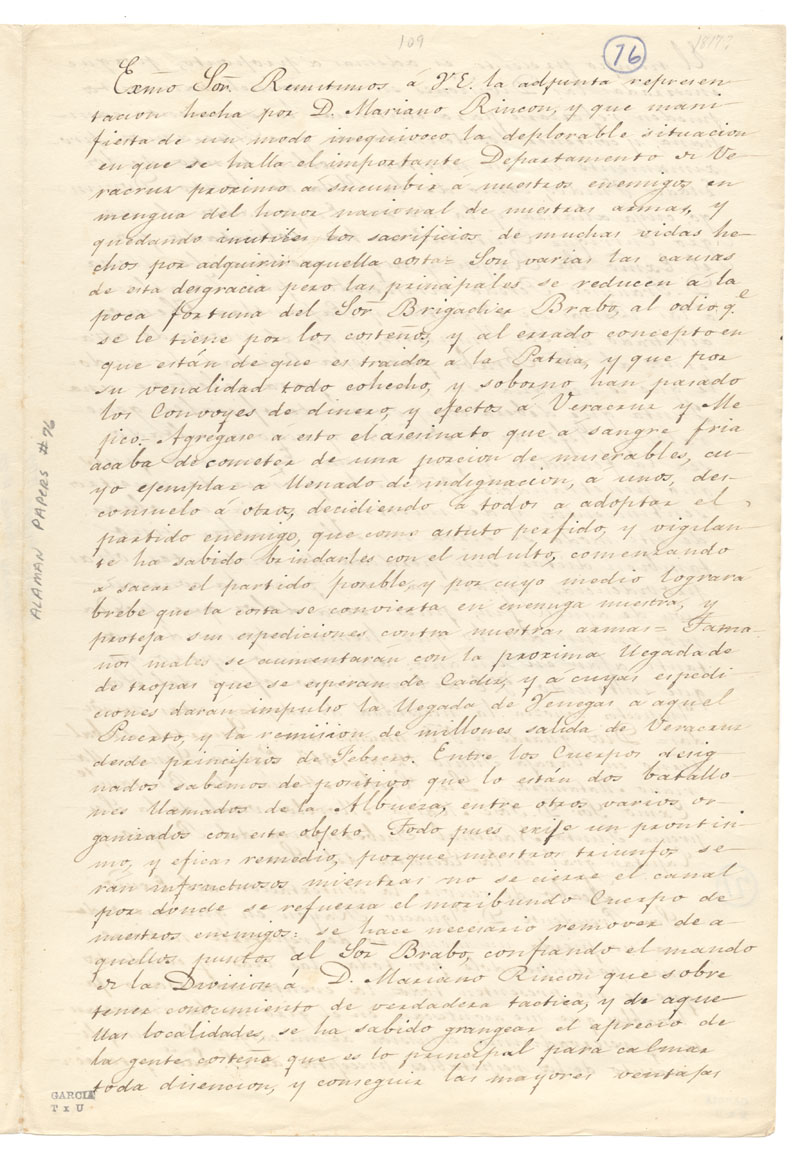 109
76
1817?
Exmo Sor. Remitimos á V.E. la adjunta represen
tacion hecha por D. Mariano Rincon, y que mani-
fiesta de un modo inequivoco la deplorable situacion
en que se halla el importante Departamento de Ve-
racruz proximo á sucumbir á nuestros enemigos en
mengua del honor nacional de nuestras armas, y
quedando inutiles los sacrificios de muchas vidas he-
chos por adquirir aquella costa= Son varias las causas
de esta desgracia pero las principales se reducen á la
poca fortuna del Sor Brigadier Brabo, al odio, q.e
se le tiene por los costeños, y al errado concepto en
que están de que es traidor á la Patria, y que por
su venalidad todo cohecho, y soborno han pasado
los Convoyes de dinero, y efectos á Veracruz y Me-
gico= Agregase á esto el asesinato que á sangre fria
acaba de cometer de una porcion de miserables, cu-
yo ejemplar a llenado de indignacion, á unos, des-
consuelo á otros, decidiendo a todos a adoptar el
partido enemigo, que como astuto perfido, y vigilan-
te ha sabido brindarles con el indulto, comenzando
a sacar el partido posible, y por cuyo medio lograrà
brebe que la costa se convierta en enemiga nuestra, y
proteja sus espediciones contra nuestras armas= Tama-
ños males se aumentarán con la proxima llegada de
de tropas que se esperan de Cadiz, y á cuyas espedi-
ciones daràn impulso la llegada de Venegas a aquel
Puerto, y la remision de millones salida de Veracruz
desde principios de Febrero. Entre los Cuerpos desig-
nados sabemos de positivo que lo están dos batallo-
nes llamados de la Albuera, entre otros varios or-
ganizados con este objeto. Todo pues exije un prontisi-
mo, y eficas remedio, porque nuestros triunfos se-
rán infructuosos mientras no se cierre el canal
por donde se refuerza el moribundo Cuerpo de
nuestros enemigos: se hace necesario remover de a-
quellos puntos al Sor Brabo, confiando el mando
de la Division á D. Mariano Rincon que sobre
tener conocimiento de verdadera tactica, y de aque-
llas localidades, se ha sabido grangear el aprecio de
la gente costeña que es lo principal para calmar
toda disencion, y conseguir las mayores ventajas
ALAMAN PAPERS #76
GARCIA
T x U